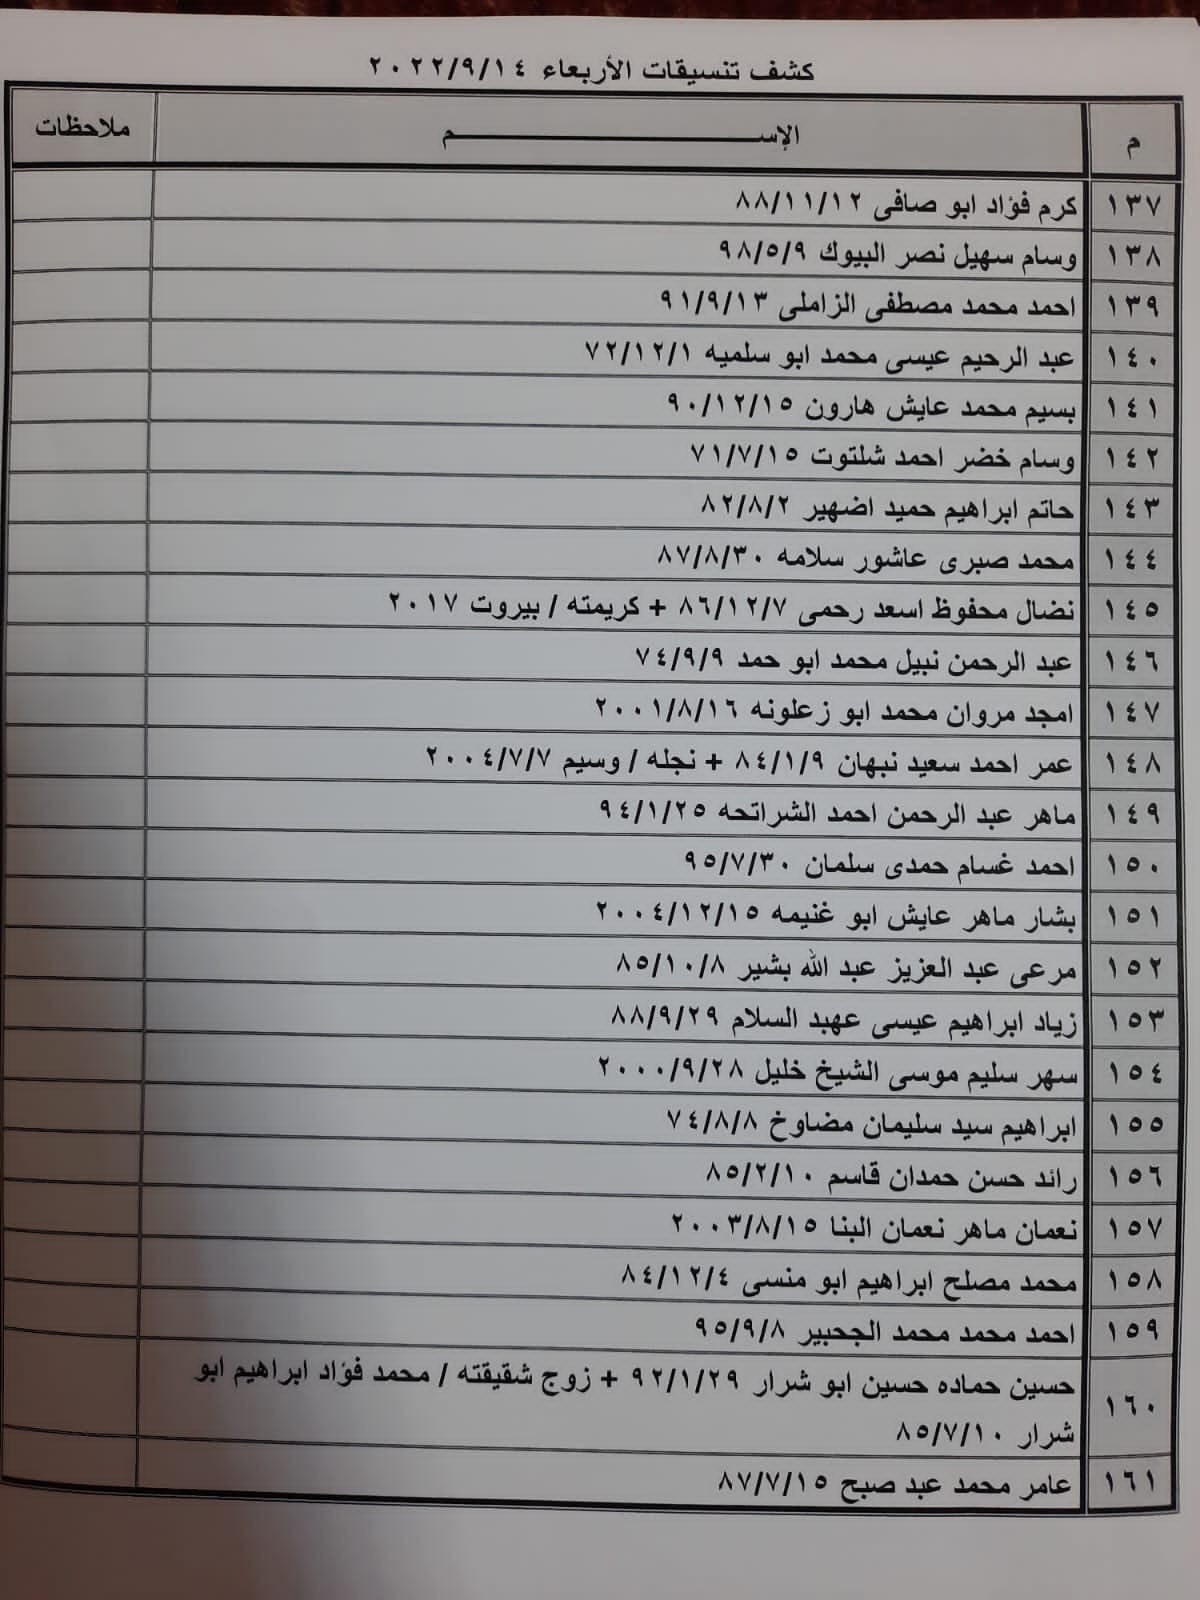 كشف تنسيقات الأربعاء ٢٠٢٢/٩/١٤
م الإســــــــــم ملاحظات
١٣٧ كرم فؤاد ابو صافى ٨٨/١١/١٢
١٣٨ وسام سهيل نصر البيوك ٩٨/٥/٩
١٣٩ احمد محمد مصطفى الزاملى ٩١/٩/١٣
١٤٠ عبد الرحيم عيسى محمد ابو سلميه ٧٢/١٢/١
١٤١ بسيم محمد عايش هارون ٩٠/١٢/١٥
١٤٢ وسام خضر احمد شلتوت ٧١/٧/١٥
١٤٣ حاتم ابراهيم حميد اضهير ٨٢/٨/٢
١٤٤ محمد صبرى عاشور سلامه ٨٧/٨/٣٠
١٤٥ نضال محفوظ اسعد رحمى ٨٦/١٢/٧ + كريمته / بيروت ٢٠١٧
١٤٦ عبد الرحمن نبيل محمد ابو حمد ٧٤/٩/٩
١٤٧ امجد مروان محمد ابو زعلونه ٢٠٠١/٨/١٦
١٤٨ عمر احمد سعيد نبهان ٨٤/١/٩ + نجله / وسيم ٢٠٠٤/٧/٧
١٤٩ ماهر عبد الرحمن احمد الشراتحه ٩٤/١/٢٥
١٥٠ احمد غسام حمدى سلمان ٩٥/٧/٣٠
١٥١ بشار ماهر عايش ابو غنيمه ٢٠٠٤/١٢/١٥
١٥٢ مرعى عبد العزيز عبد الله بشير ٨٥/١٠/٨
١٥٣ زياد ابراهيم عيسى عهبد السلام ٨٨/٩/٢٩
١٥٤ سهر سليم موسى الشيخ خليل ٢٠٠٠/٩/٢٨
١٥٥ ابراهيم سيد سليمان مضاوخ ٧٤/٨/٨
١٥٦ رائد حسن حمدان قاسم ٨٥/٢/١٠
١٥٧ نعمان ماهر نعمان البنا ٢٠٠٣/٨/١٥
١٥٨ محمد مصلح ابراهيم ابو منسى ٨٤/١٢/٤
١٥٩ احمد محمد محمد الجحبير ٩٥/٩/٨
١٦٠ حسين حماده حسين ابو شرار ٩٢/١/٢٩ + زوج شقيقته / محمد فؤاد ابراهيم ابو
شرار ٨٥/٧/١٠
١٦١ عامر محمد عبد صبح ٨٧/٧/١٥